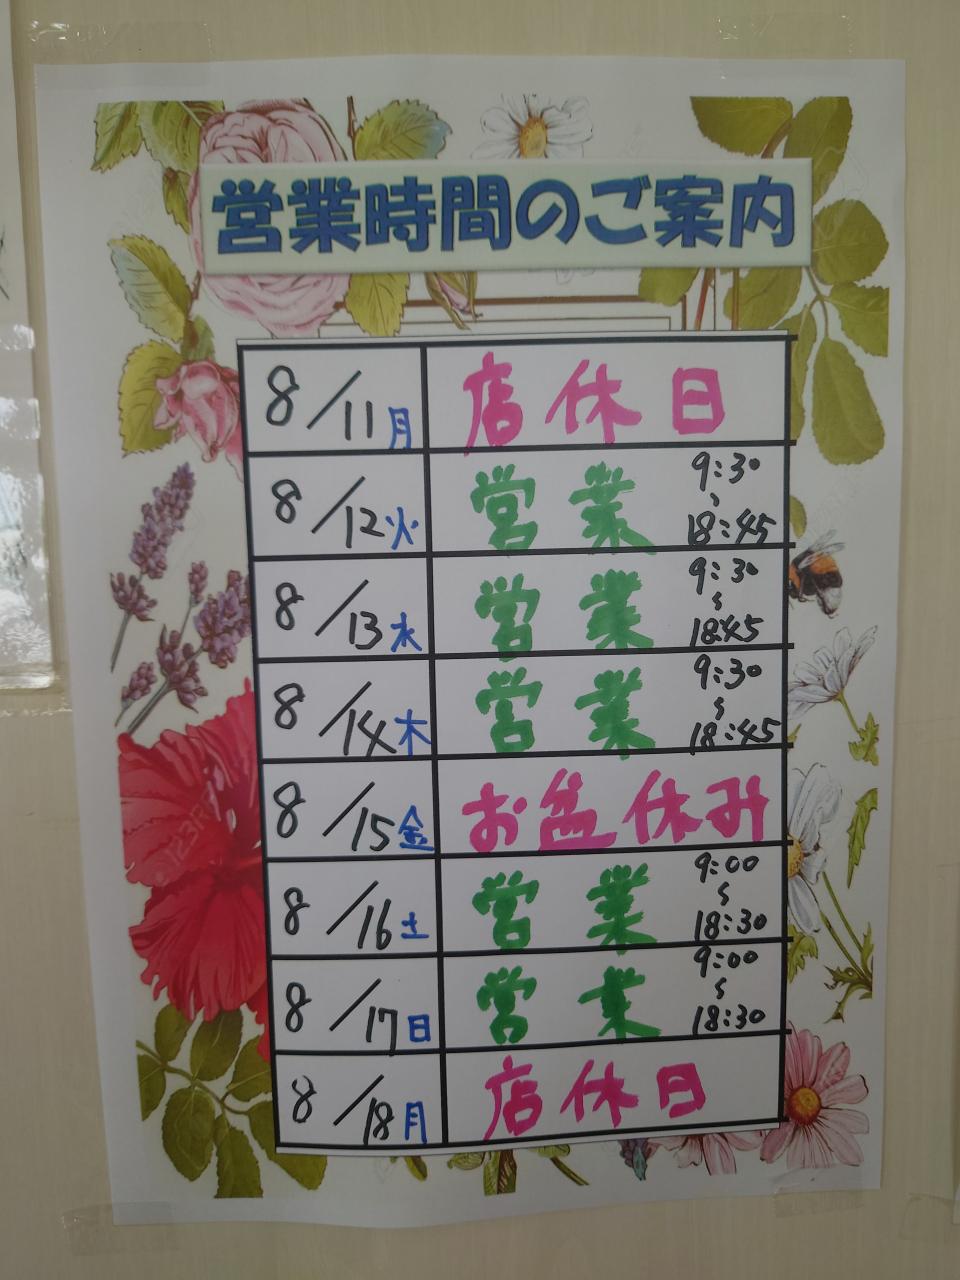 営業時間のご案内
8/11月 店休日
8/12火 営業 9:30〜18:45
8/13水 営業 9:30〜18:45
8/14木 営業 9:30〜18:45
8/15金 お盆休み
8/16土 営業 9:00〜18:30
8/17日 営業 9:00〜18:30
8/18月 店休日